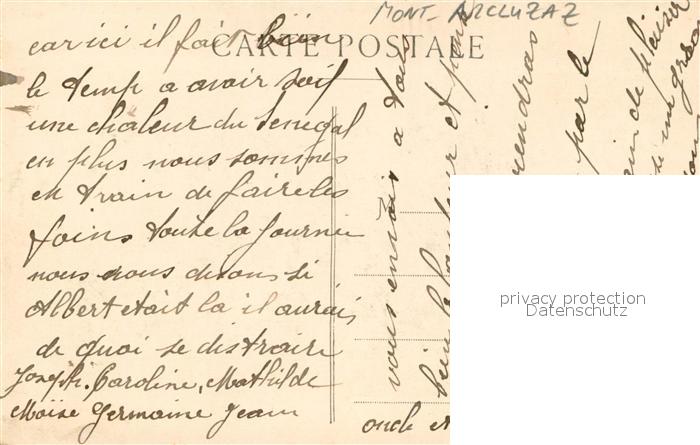 MONT-ARCLUZAZ
CARTE POSTALE
car ici il fait bien
le temp a avoir soif
une chaleur du Senegal
en plus nous sommes
en train de faire les
foins toute la journee
nous nous disons si
Albert etait la il aurais
de quoi se distraire
Joseph. Caroline, Mathilde
Moïse Germaine Jean
vous envoyer a tous
bien le bonheur et
rendras
par le
de plaisir
oncle et
privacy protection
Datenschutz